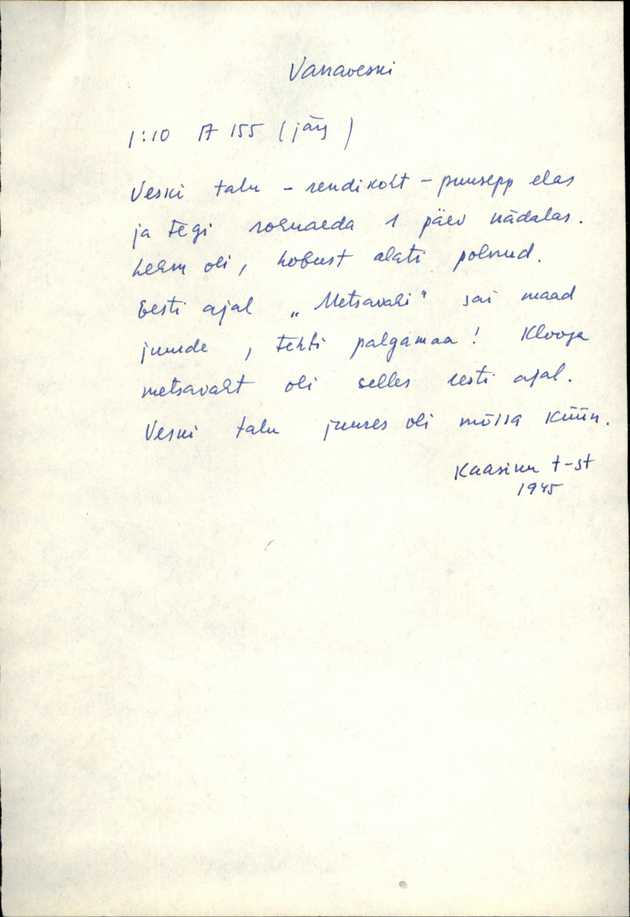 Vanaveski
1:10 A 155 (järg)
Veski talu – rendikoht – puusepp elas
ja tegi 1 päev nädalas.
Lehm oli, hobust alati polnud.
Eesti ajal „Metsavahi" sai maad
juurde, tehti palgamaa! Klooga
metsavaht oli selles eesti ajal.
Veski talu juures oli mõisa küün.
Kaasiku t-st
1945